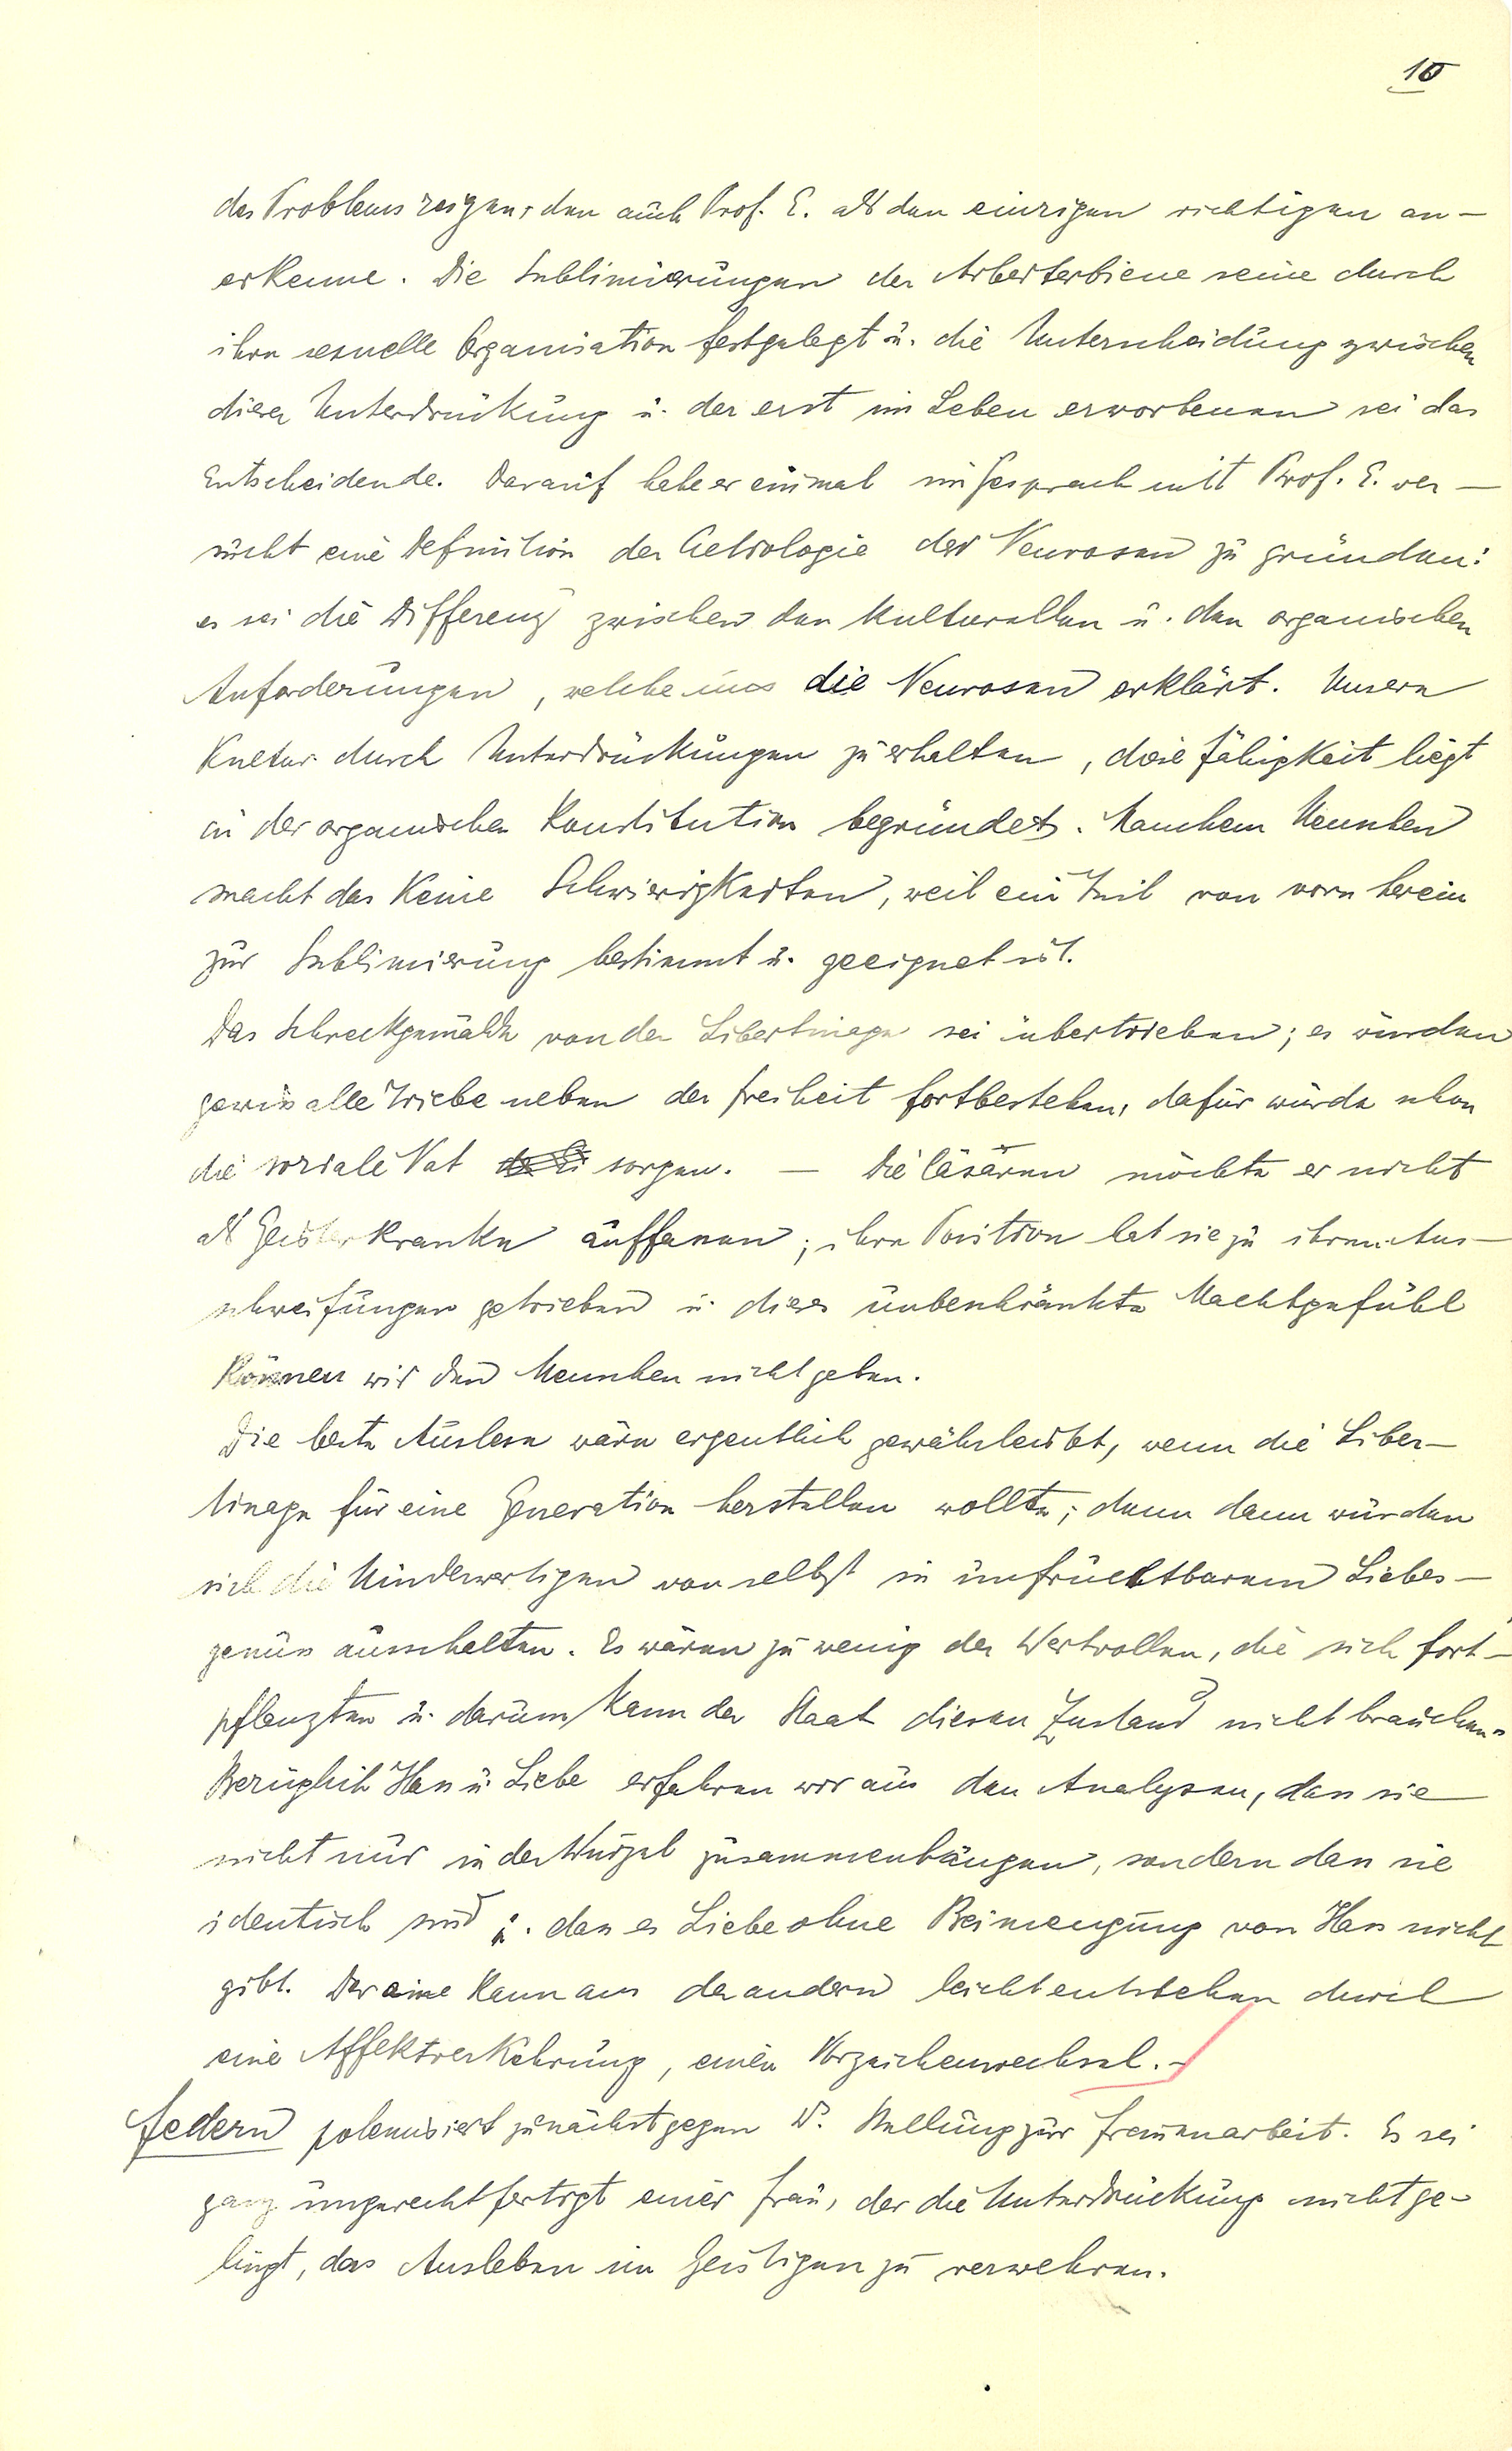 10
des Problems zeigen, den auch Prof. E. als den einzigen richtigen an-
erkenne. Die Sublimierungen der Arbeiterbiene seine durch
ihre sexuelle Organisation festgelegt u. die Unterscheidung zwischen
dieser Unterdrückung u. der erst im Leben erworbenen sei das
Entscheidende. Darauf habe er einmal im Gespräch mit Prof. E. ver-
sucht eine Definition der Aetiologie der Neurosen zu gründen:
es sei die Differenz zwischen den kulturellen u. den organischen
Anforderungen, welche uns die Neurosen erklärt. Unsere
Kultur durch Unterdrückungen zu erhalten, diese Fähigkeit liegt
in der organischen Konstitution begründet. Manchem Menschen
macht das keine Schwierigkeiten, weil ein Teil von vorn herein
zur Sublimierung bestimmt u. geeignet ist.
Das Schreckgemälde von der Libertinage sei übertrieben; es würden
gewiss alle Triebe neben der Freiheit fortbestehen, dafür würde schon
die soziale Not sorgen. — Die Cäsaren möchte er nicht
als Geisteskranke auffassen; ihre Position hat sie zu ihren Aus-
schweifungen getrieben u. dieses unbeschränkte Machtgefühl
können wir den Menschen nicht geben.
Die beste Auslese wäre eigentlich gewährleistet, wenn die Liber-
tinage für eine Generation herstellen wollte; denn dann würden
sich die Minderwertigen von selbst in unfruchtbarem Liebes-
genuss ausschalten. Es wären zu wenig der Wertvollen, die sich fort-
pflanzten u. darum kann der Staat diesen Zustand nicht brauchen.
Bezüglich Hass u. Liebe erfahren wir aus den Analysen, dass sie
nicht nur in der Wurzel zusammenhängen, sondern dass sie
identisch sind u. dass es Liebe ohne Beimengung von Hass nicht
gibt. Der eine kann aus der andern leicht entstehen durch
eine Affektverkehrung, einen Vorzeichenwechsel. -
Federn polemisiert zunächst gegen W. Stellung zur Frauenarbeit. Es sei
ganz ungerechtfertigt einer Frau, der die Unterdrückung nicht ge-
lingt, das Ausleben im Geistigen zu verwehren.